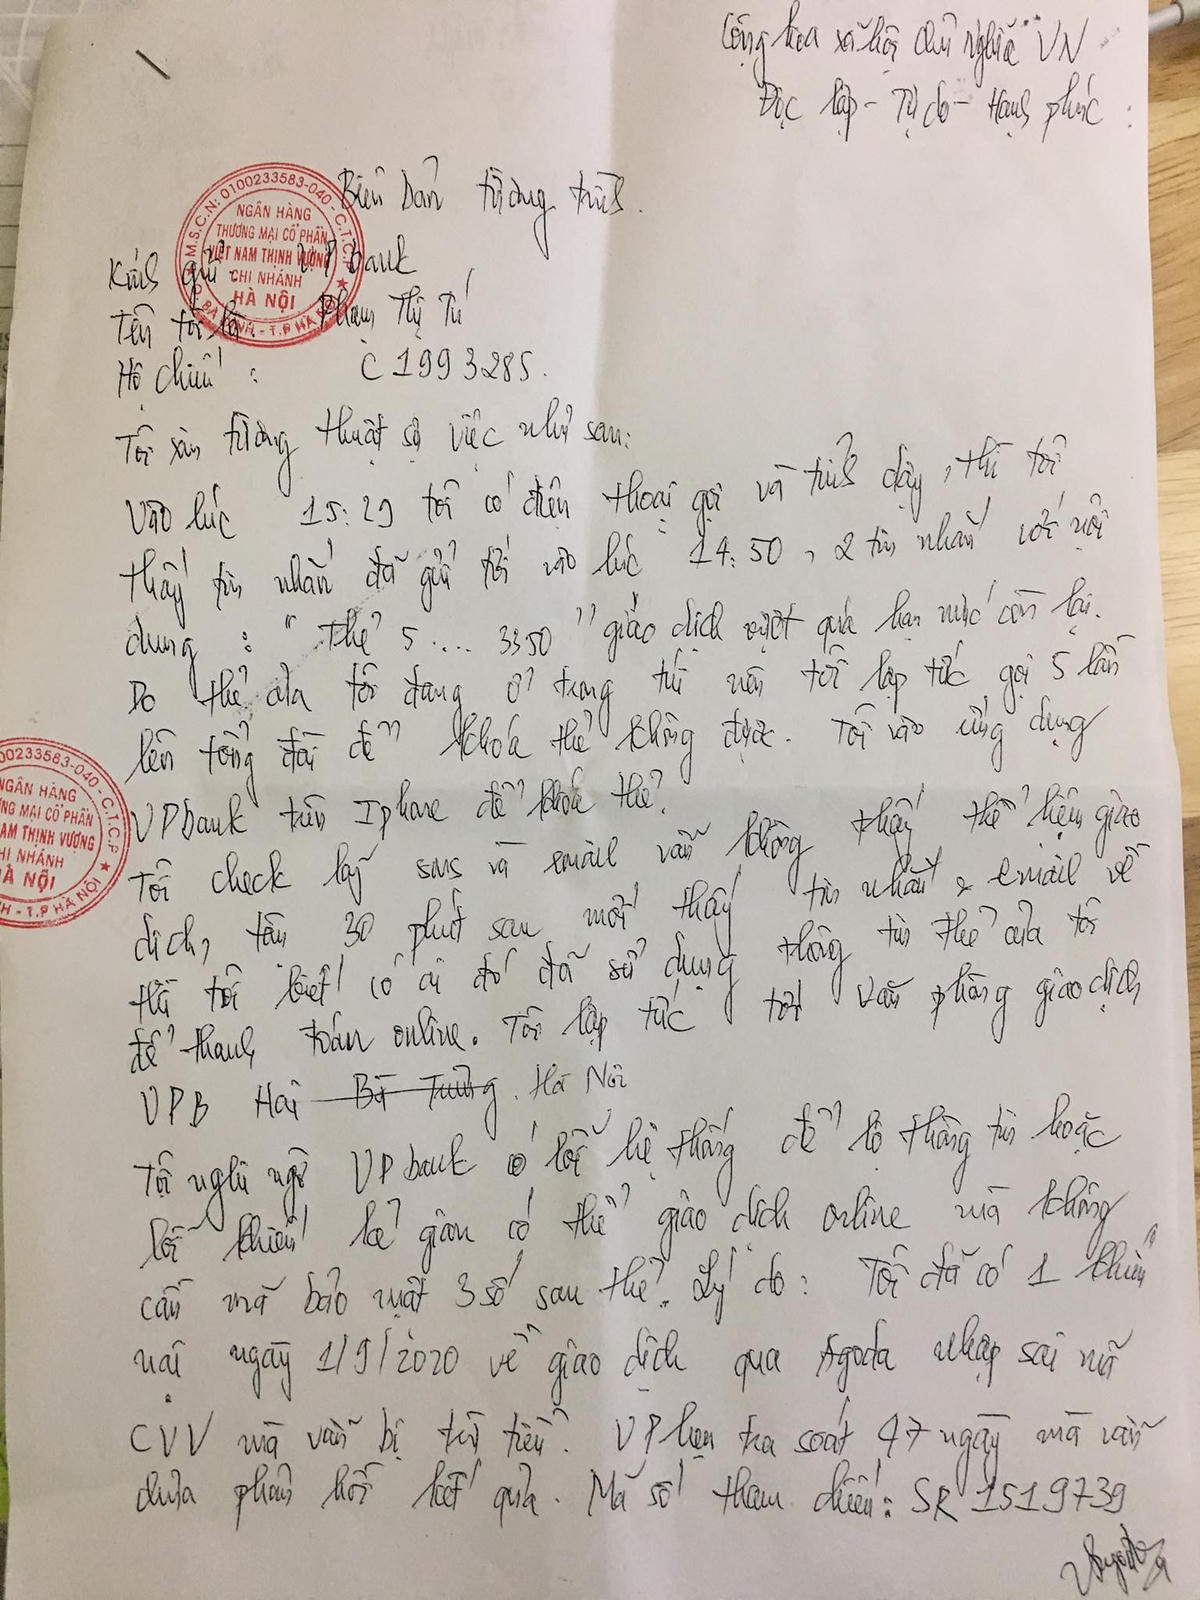 Cộng hòa xã hội chủ nghĩa VN
Độc lập - Tự do - Hạnh phúc
Biên bản tường trình.
Kính gửi: VP bank
Tên tôi là: Phạm Thị Tú
Hộ chiếu: C1993285.
Tôi xin tường thuật sự việc như sau:
Vào lúc 15:29 tôi có điện thoại gọi và tỉnh dậy, thì tôi
thấy tin nhắn đã gửi tới vào lúc 14:50, 2 tin nhắn với nội
dung: "Thẻ 5.... 3350" giao dịch vượt quá hạn mức còn lại.
Do thẻ của tôi đang ở trong túi nên tôi lập tức gọi 5 lần
lên tổng đài để khóa thẻ không được. Tôi vào ứng dụng
VPbank trên Iphone để khóa thẻ.
Tôi check lại sms và email vẫn không thấy thể hiện giao
dịch, tầm 30 phút sau mới thấy tin nhắn & email về
thì tôi biết có ai đó đã sử dụng thông tin thẻ của tôi
để thanh toán online. Tôi lập tức tới văn phòng giao dịch
VPB Hai Bà Trưng. Hà Nội
Tôi nghi ngờ VPbank có lỗi hệ thống để lộ thông tin hoặc
lỗi khiến kẻ gian có thể giao dịch online mà không
cần mã bảo mật 3 số sau thẻ. Lý do: Tôi đã có 1 khiếu
nại ngày 1/9/2020 về giao dịch qua Agoda nhập sai mã
CVV mà vẫn bị trừ tiền. VP hẹn tra soát 47 ngày mà vẫn
chưa phản hồi kết quả. Mã số tham chiếu: SR 1519739
M.S.C.N: 0100233583-040 - C.T.C.P
NGÂN HÀNG
THƯƠNG MẠI CỔ PHẦN
VIỆT NAM THỊNH VƯỢNG
CHI NHÁNH
HÀ NỘI
BA ĐÌNH - T.P HÀ NỘI
00233583-040 - C.T.C.P
NGÂN HÀNG
NG MẠI CỔ PHẦN
NAM THỊNH VƯỢNG
HI NHÁNH
HÀ NỘI
H - T.P HÀ NỘI